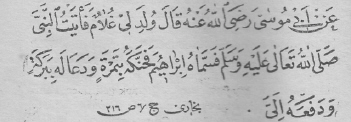 عَنْ اَبِیْ مُوْسٰی رَضِیَ اللّٰهُ عَنْهُ قَالَ وُلِدَ لِیْ غُلَامٌ فَاَتَیْتُ النَّبِیَّ
صَلَّی اللّٰهُ تَعَالٰی عَلَیْهِ وَسَلَّمَ فَسَمَّاهُ اِبْرَاهِیْمَ فَحَنَّكَهٗ بِتَمْرَةٍ وَدَعَا لَهٗ بِبَرَكَةٍ
وَدَفَعَهٗ اِلَیَّ بخاری ج ۷ ص ۲۱۶